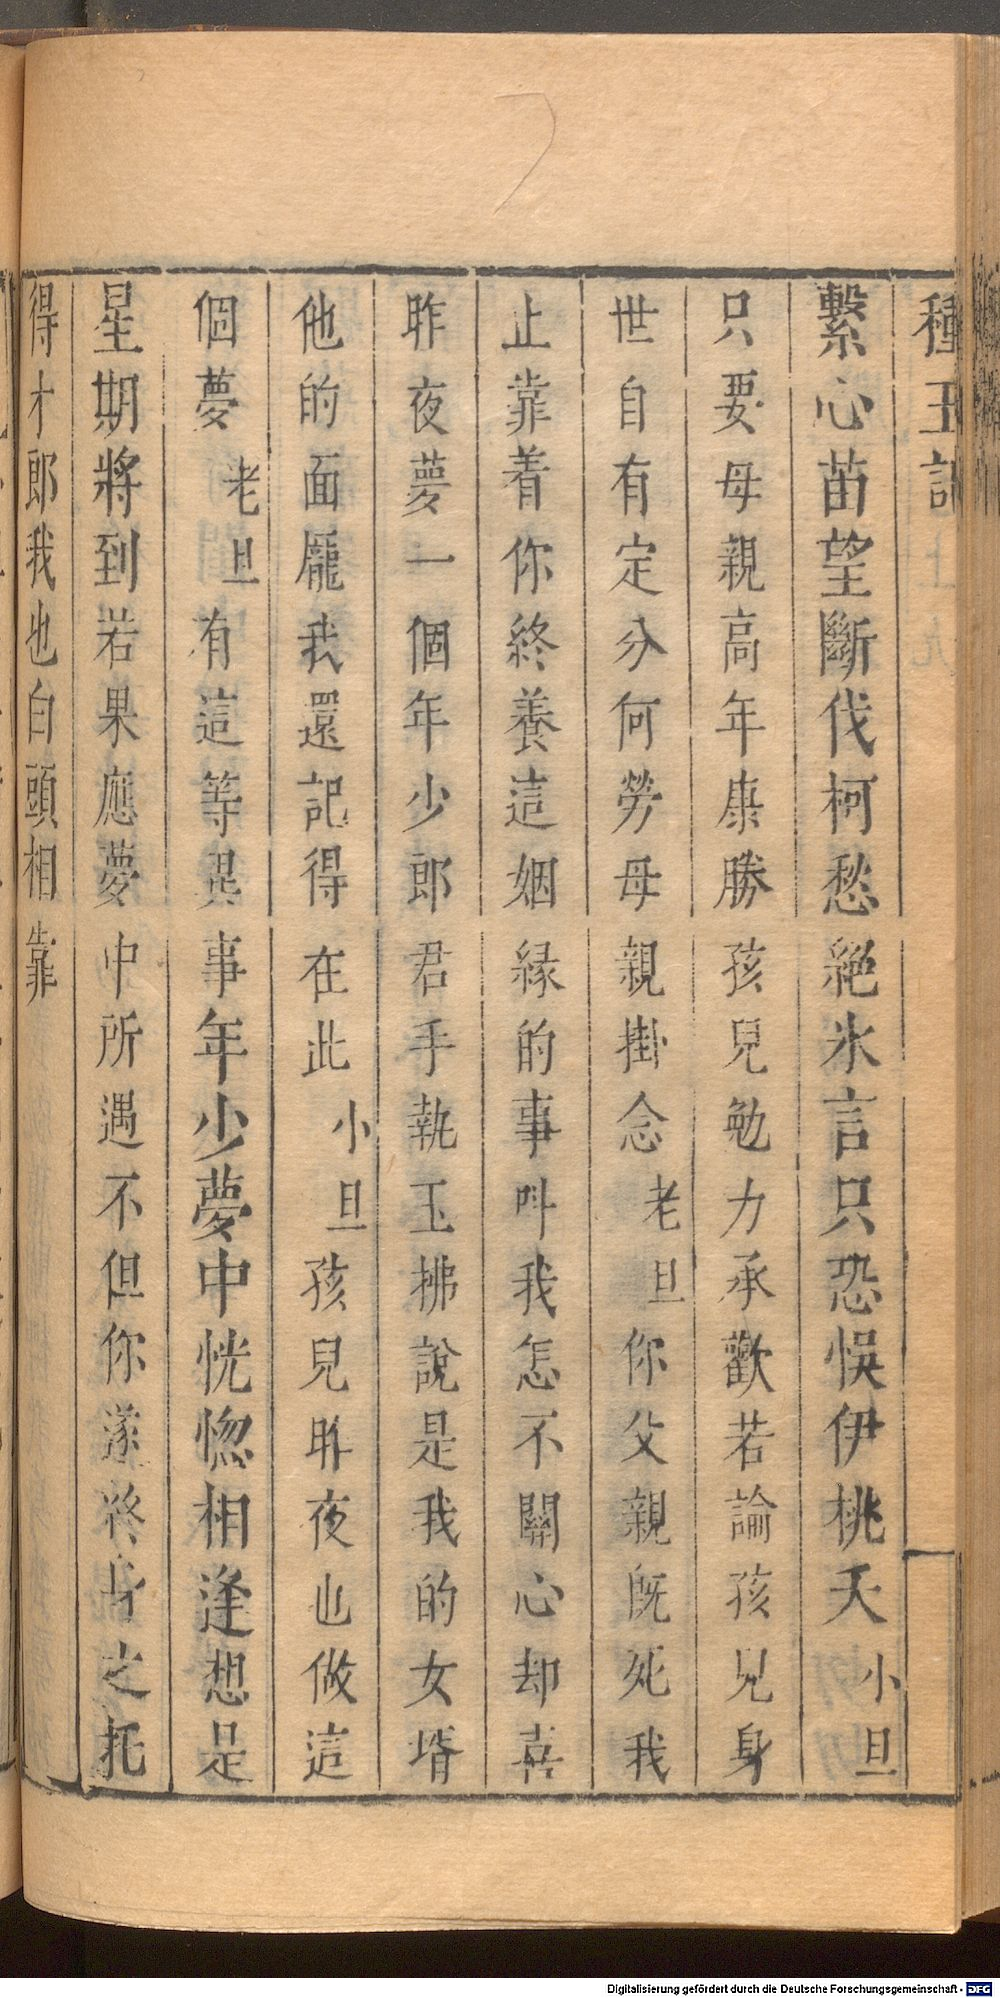 種玉記
繫心苗望斷伐柯愁絕氷言只恐悞伊桃夭 小旦
只要母親高年康勝孩兒勉力承歡若論孩兒身
世自有定分何勞母親掛念 老旦 你父親旣死我
止靠着你終養這姻緣的事叫我怎不關心却喜
昨夜夢一個年少郎君手執玉拂說是我的女壻
他的面龐我還記得在此 小旦 孩兒昨夜也做這
個夢 老旦 有這等異事年少夢中恍惚相逢想是
星期將到若果應夢中所遇不但你遂終身之托
得才郎我也白頭相靠
Digitalisierung gefördert durch die Deutsche Forschungsgemeinschaft - DFG